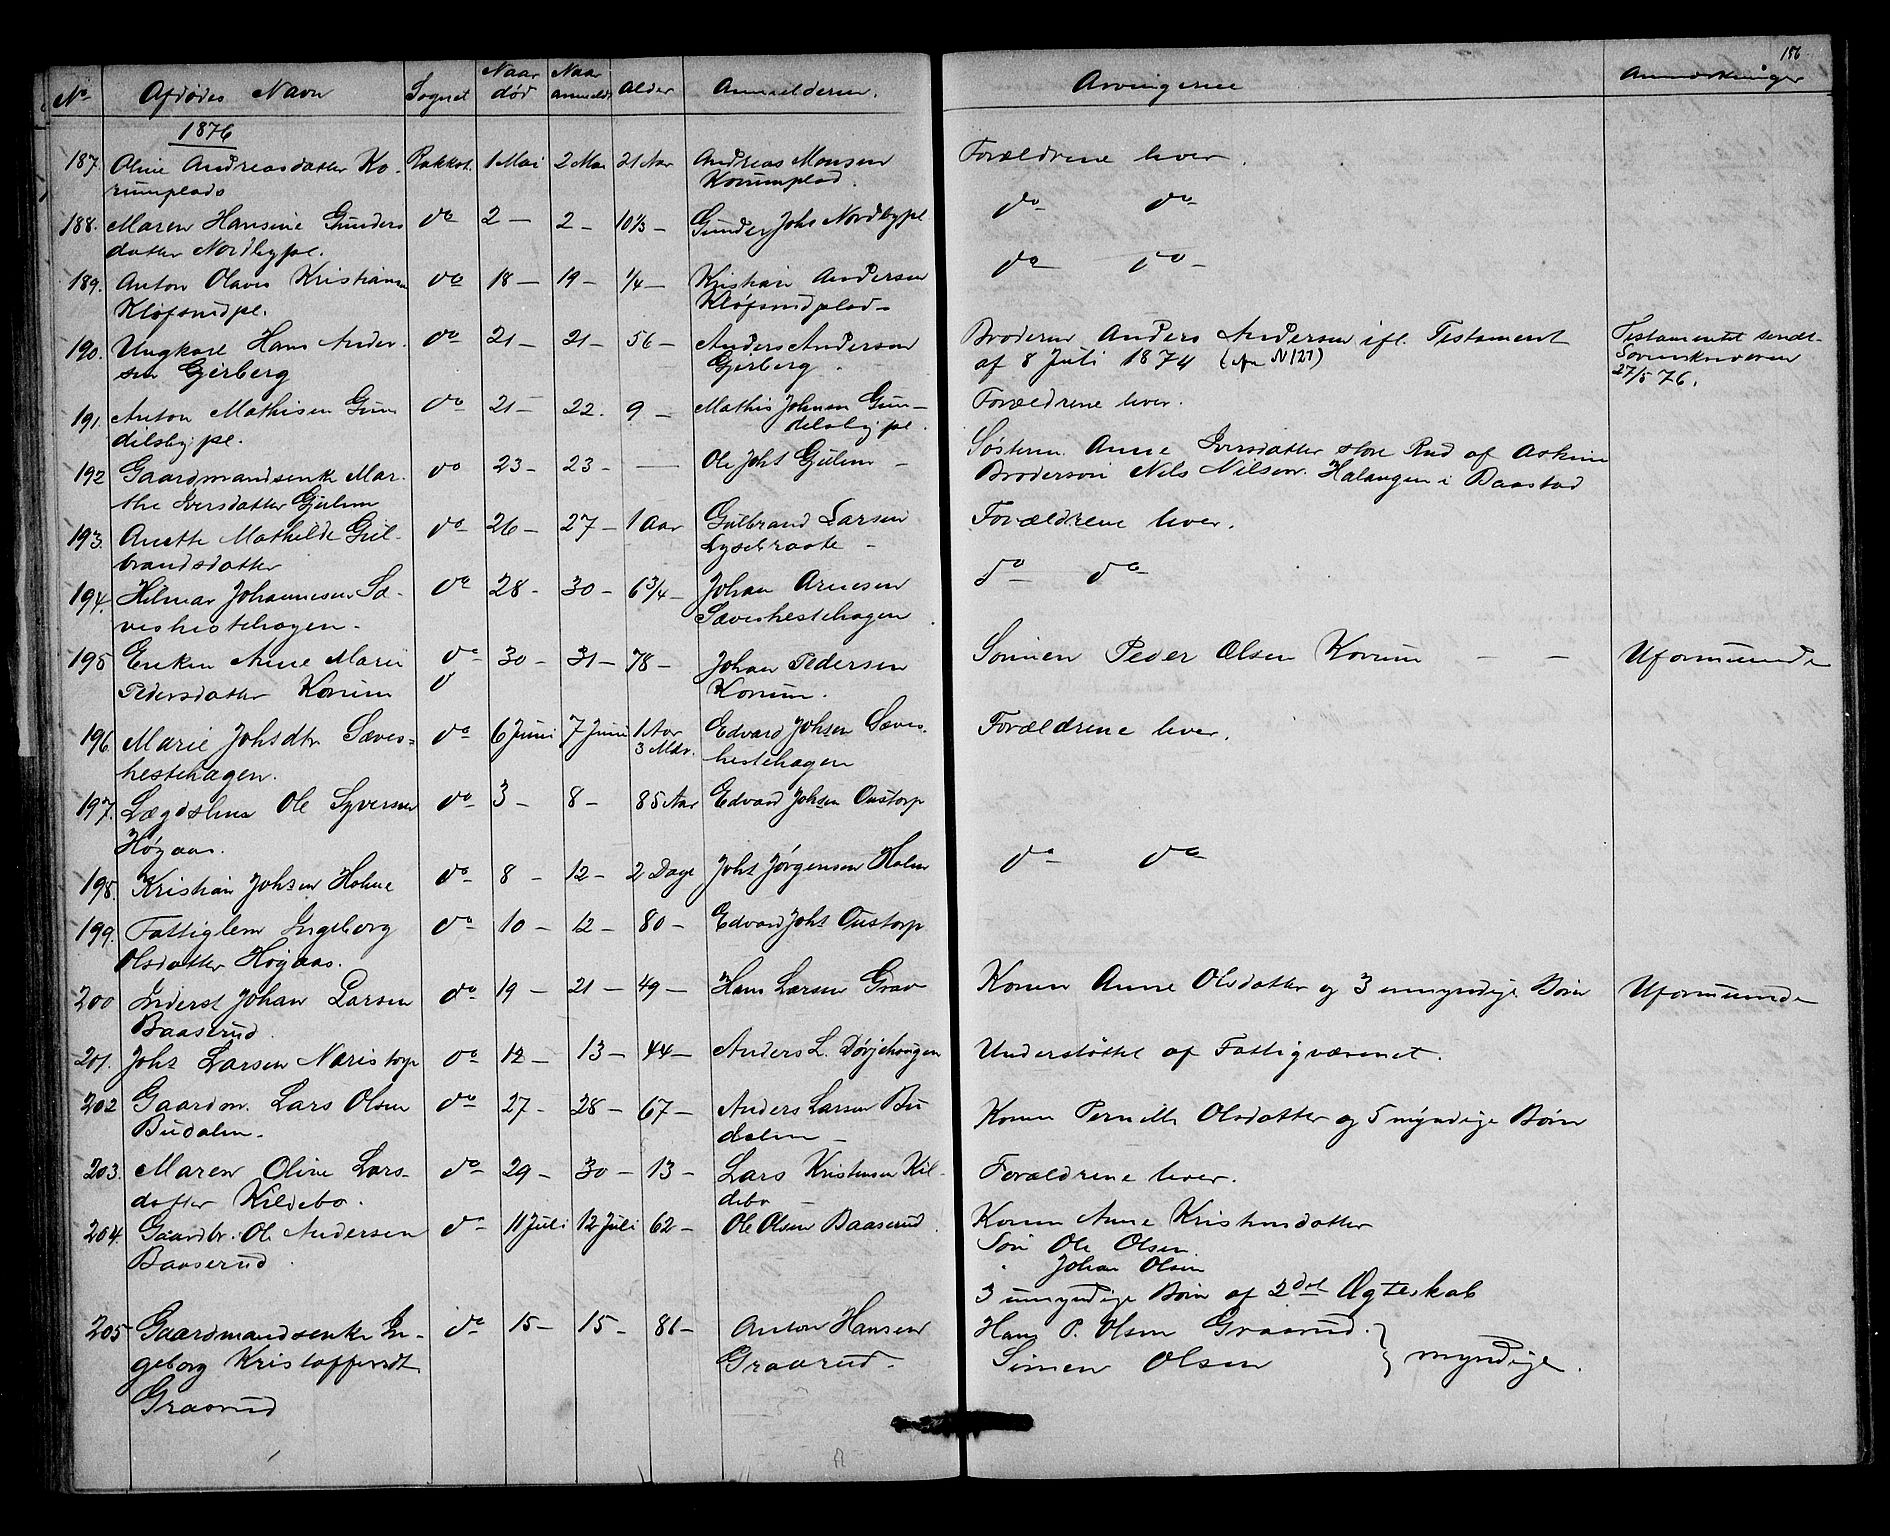 156
No Afdødes Navn Sognet Naar død Naar anmeldt Alder Anmelderen. Arvingerne Anmærkninger
1876
187. Oline Andreasdatter Ko- Rakkst. 1 Mai 2 Mai 21 Aar Andreas Monsen Forældrene lever.
rumplads Korumplad.
188. Maren Hansine Gunders do 2 — 2 — 10⅓ — Gunder Johs Nordbypl do do
datter Nordbypl.
189. Anton Olaves Kristiansen do 18 — 19 — ¼ — Kristian Andersen do do
Kløfsrudpl. Kløfsrudplads
190. Ungkarl Hans Ander- do 21 — 21 — 56 — Anders Andersen Broderen Anders Andersen ifl. Testament Testamentet sendt
sen Gjerberg Gjerberg. af 8 Juli 1874 (No 127) Sorenskriveren
27/5 76.
191. Anton Mathisen Gun do 21 — 22. 9 — Mathis Johnsen Gun- Forældrene lever.
dilsby pl. dilsby pl.
192 Gaardmandsenke Mar- do 23 — 23 — — Ole Johs Gjulem — Søsteren Anne Iversdatter store Rud af Askim
the Iversdatter Gjulem Brodersøn Nils Nilsen Halangen i Baastad
193. Anette Mathilde Gul- do 26 — 27 — 1 Aar Gulbrand Larsen Forældrene lever.
brandsdatter Lysebraate —
194. Hilmar Johannesen Sæ- do 28 — 30 — 6¾ — Johan Arnesen do do
veshestehagen — Sæveshestehagen
195 Enken Anne Marie do 30 — 31 — 78 — Johan Pedersen Sønnen Peder Olsen Korum — — Uformuende
Pedersdatter Korum Korum.
196 Marie Johsdtr Sæves- do 6 Juni 7 Juni 1 Aar Edvard Johsen Sæves- Forældrene lever.
hestehagen. 3 Mdr. hestehagen
197. Lægdslem Ole Syversen do 3 — 8 — 85 Aar Edvard Johsen Oustorp
Høgaas.
198. Kristian Johsen Holme do 8 — 12 — 2 Dage Johs Jørgensen Holm do do
199. Fattiglem Ingeborg do 10 — 12 — 80 — Edvard Johs Oustorp
Olsdatter Høgaas.
200 Inderst Johan Larsen do 19 — 21 — 49 — Hans Larsen Grav Konen Anne Olsdatter og 3 umyndige Børn Uformuende
Baaserud.
201. Johs Larsen Næristorp do 12 — 13 — 44 — Anders L. Dørjehougen Understøttet af Fattigvæsenet.
202 Gaardm. Lars Olsen do 27 — 28 — 67 — Anders Larsen Bu Konen Pernille Olsdatter og 5 myndige Børn
Budalen. dalen —
203. Maren Oline Lars- do 29 — 30 — 13 — Lars Kristensen Kil- Forældrene lever.
datter Kildebo. debo —
204. Gaardbr. Ole Andersen do 11 Juli 12 Juli 62 — Ole Olsen Baaserud Konen Anne Kristensdatter
Baaserud. Søn Ole Olsen.
" Johan Olsen
3 umyndige Børn af 2det Ægteskab
205 Gaardmandsenke In- do 15 — 15 — 81 — Anton Hansen Hans P. Olsen Graarud.
geborg Kristoffersdt Graarud. Simen Olsen } myndige.
Graarud